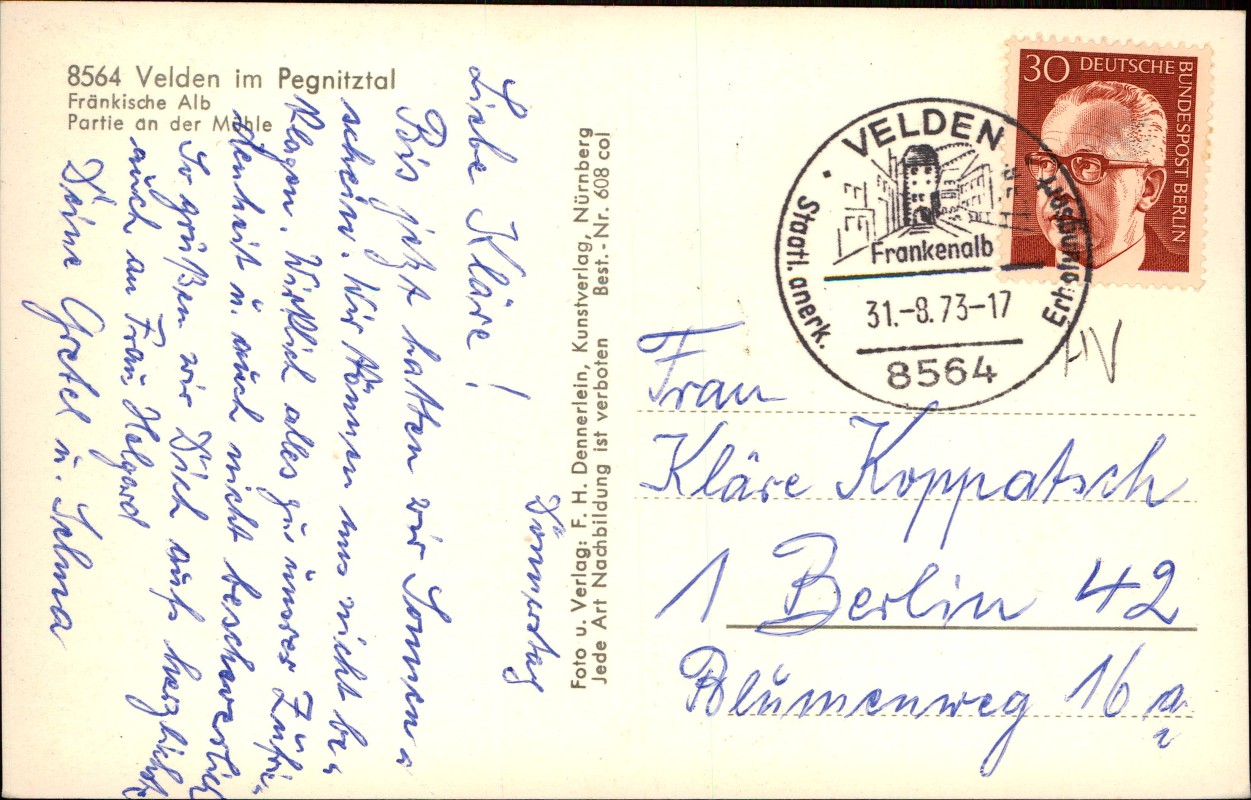 8564 Velden im Pegnitztal
Fränkische Alb
Partie an der Mühle
Donnerstag
Liebe Kläre!
Bis jetzt hatten wir Sonnen=
schein. Wir können uns nicht be=
klagen. Wirklich alles zu unserer Zufrie=
denheit u. auch nicht beschwerlich
So grüßen wir Dich aufs herzlichste
auch an Frau Helgard
Deine Gretel u. Selma
Foto u. Verlag: F. H. Dennerlein, Kunstverlag, Nürnberg
Jede Art Nachbildung ist verboten Best.-Nr. 608 col
30 DEUTSCHE BUNDESPOST BERLIN
VELDEN
Staatl. anerk. Erholungsort
Frankenalb
31.-8.73-17
8564
Frau
Kläre Koppatsch
1 Berlin 42
Blumenweg 16 a